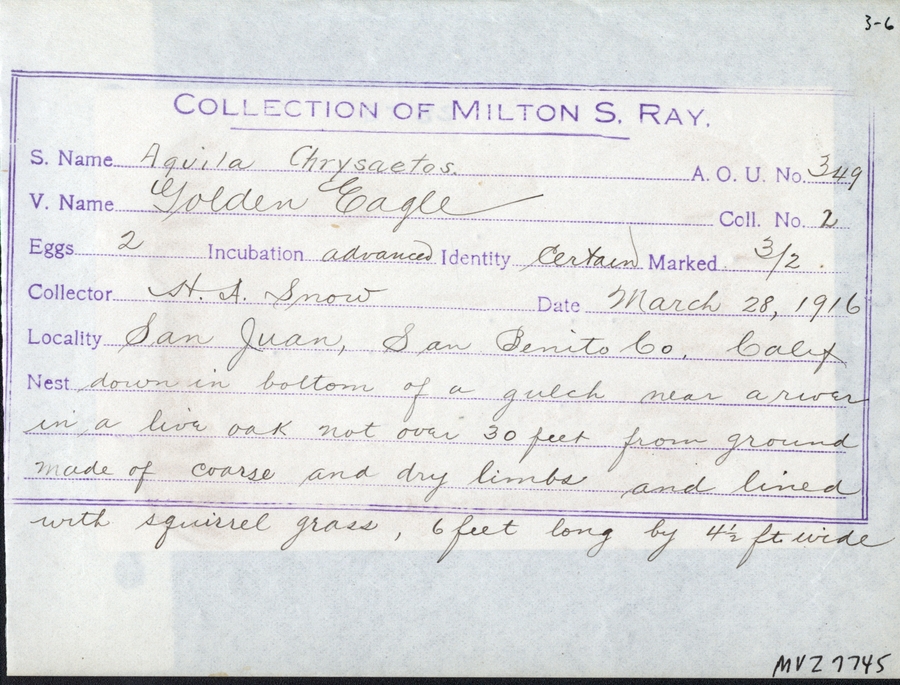 3-6
COLLECTION OF MILTON S. RAY.
S. Name Aquila Chrysaetos. A. O. U. No. 349
V. Name Golden Eagle Coll. No. 2
Eggs 2 Incubation advanced Identity Certain Marked 3/2.
Collector H. A. Snow Date March 28, 1916
Locality San Juan, San Benito Co. Calif
Nest down in bottom of a gulch near a river
in a live oak not over 30 feet from ground
made of coarse and dry limbs and lined
with squirrel grass, 6 feet long by 4½ ft wide
MVZ 7745